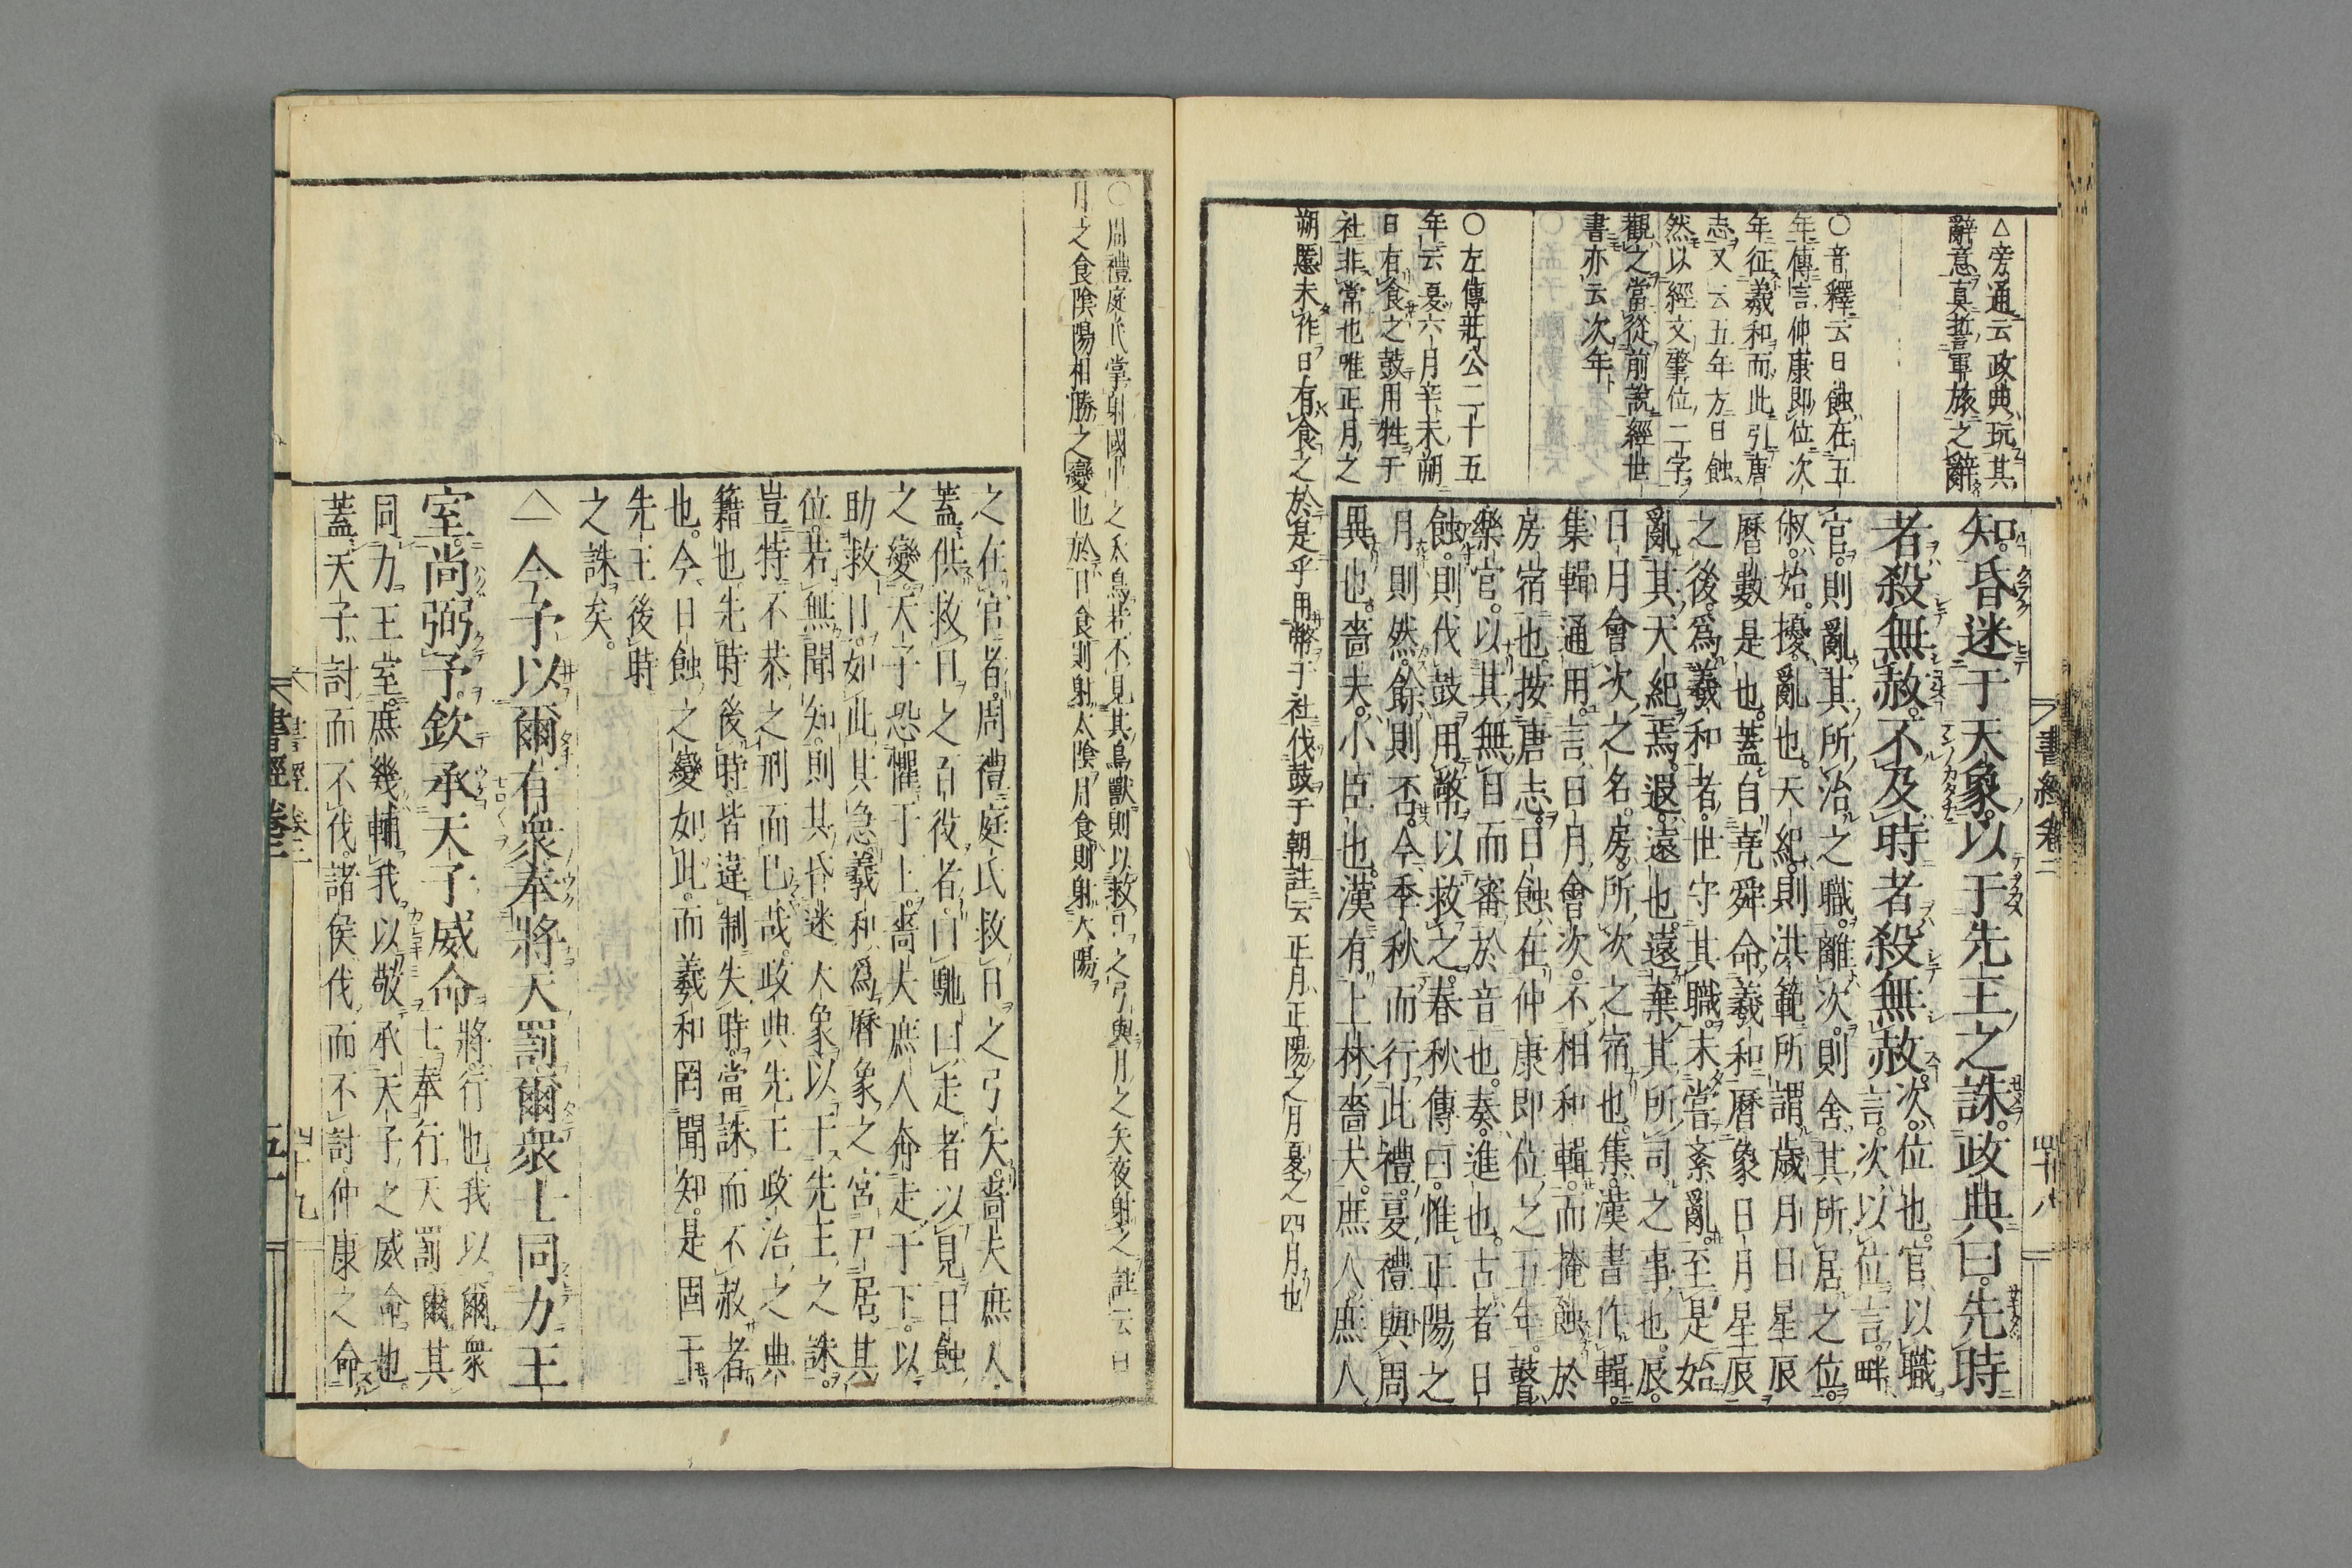 △旁通云政典玩其
辭意真誓軍旅之辭
○音釋云日蝕在五
年傳言仲康即位次
年征羲和而此引唐
志又云五年方日蝕
然以經文肇位二字
觀之當從前說經世
書亦云次年
○左傳莊公二十五
年云夏六月辛未朔
日有食之鼓用牲于
社非常也唯正月之
朔慝未作日有食之於是乎用幣于社伐鼓于朝註云正月正陽之月夏之四月也
書經卷二
四十八
知。昏迷于天象。以于先王之誅。政典曰。先時
者殺無赦。不及時者殺無赦。
次。位也。官以職
言。次以位言。畔
官。則亂其所治之職。離次。則舍其所居之位。
俶。始。擾。亂也。天紀。則洪範所謂歲月日星辰
曆數是也。蓋自堯舜命羲和曆象日月星辰
之後。為羲和者。世守其職。未嘗紊亂。至是始
亂其天紀焉。遐。遠也。遠棄其所司之事也。辰。
日月會次之名。房。所次之宿也。集。漢書作輯。
集輯通用。言日月會次。不相和輯。而掩蝕於
房宿也。按唐志。日蝕在仲康即位之五年。瞽。
樂官。以其無目而審於音也。奏。進也。古者日
蝕。則伐鼓用幣以救之。春秋傳曰。惟正陽之
月則然。餘則否。今季秋而行此禮。夏禮與周
異也。嗇夫。小臣也。漢有上林嗇夫。庶人。庶人
○周禮庭氏掌射國中之夭鳥若不見其鳥獸則以救日之弓與月之矢夜射之註云日
月之食陰陽相勝之變也於日食則射太陰月食則射大陽
之在官者。周禮庭氏救日之弓矢。嗇夫庶人。
蓋供救日之百役者。曰馳曰走者以見日蝕
之變。天子恐懼于上。嗇夫庶人奔走于下。以
助救日。如此其急。羲和為曆象之官。尸居其
位。若無聞知。則其昏迷天象。以干先王之誅。
豈特不恭之刑而已哉。政典先王政治之典
籍也。先時後時。皆違制失時。當誅而不赦者
也。今日蝕之變如此。而羲和罔聞知。是固干
先王後時
之誅矣。
△今予以爾有眾奉將天罰爾眾士同力王
室。尚弼予。欽承天子威命
將。行也。我以爾眾
士。奉行天罰。爾其
同力王室。庶幾輔我以敬承天子之威命也。
蓋天子討而不伐。諸侯伐而不討仲康之命
書經卷二
四十九
書經卷二
五十